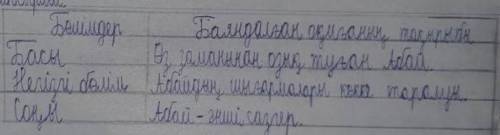 Бөлімдер Баяндалған оқиғаның тақырыбы
Басы Өз заманынан озық туған Абай
Негізгі бөлім Абайдың шығармалары көпке таралуы.
Соңы Абай - әнші сазгер.